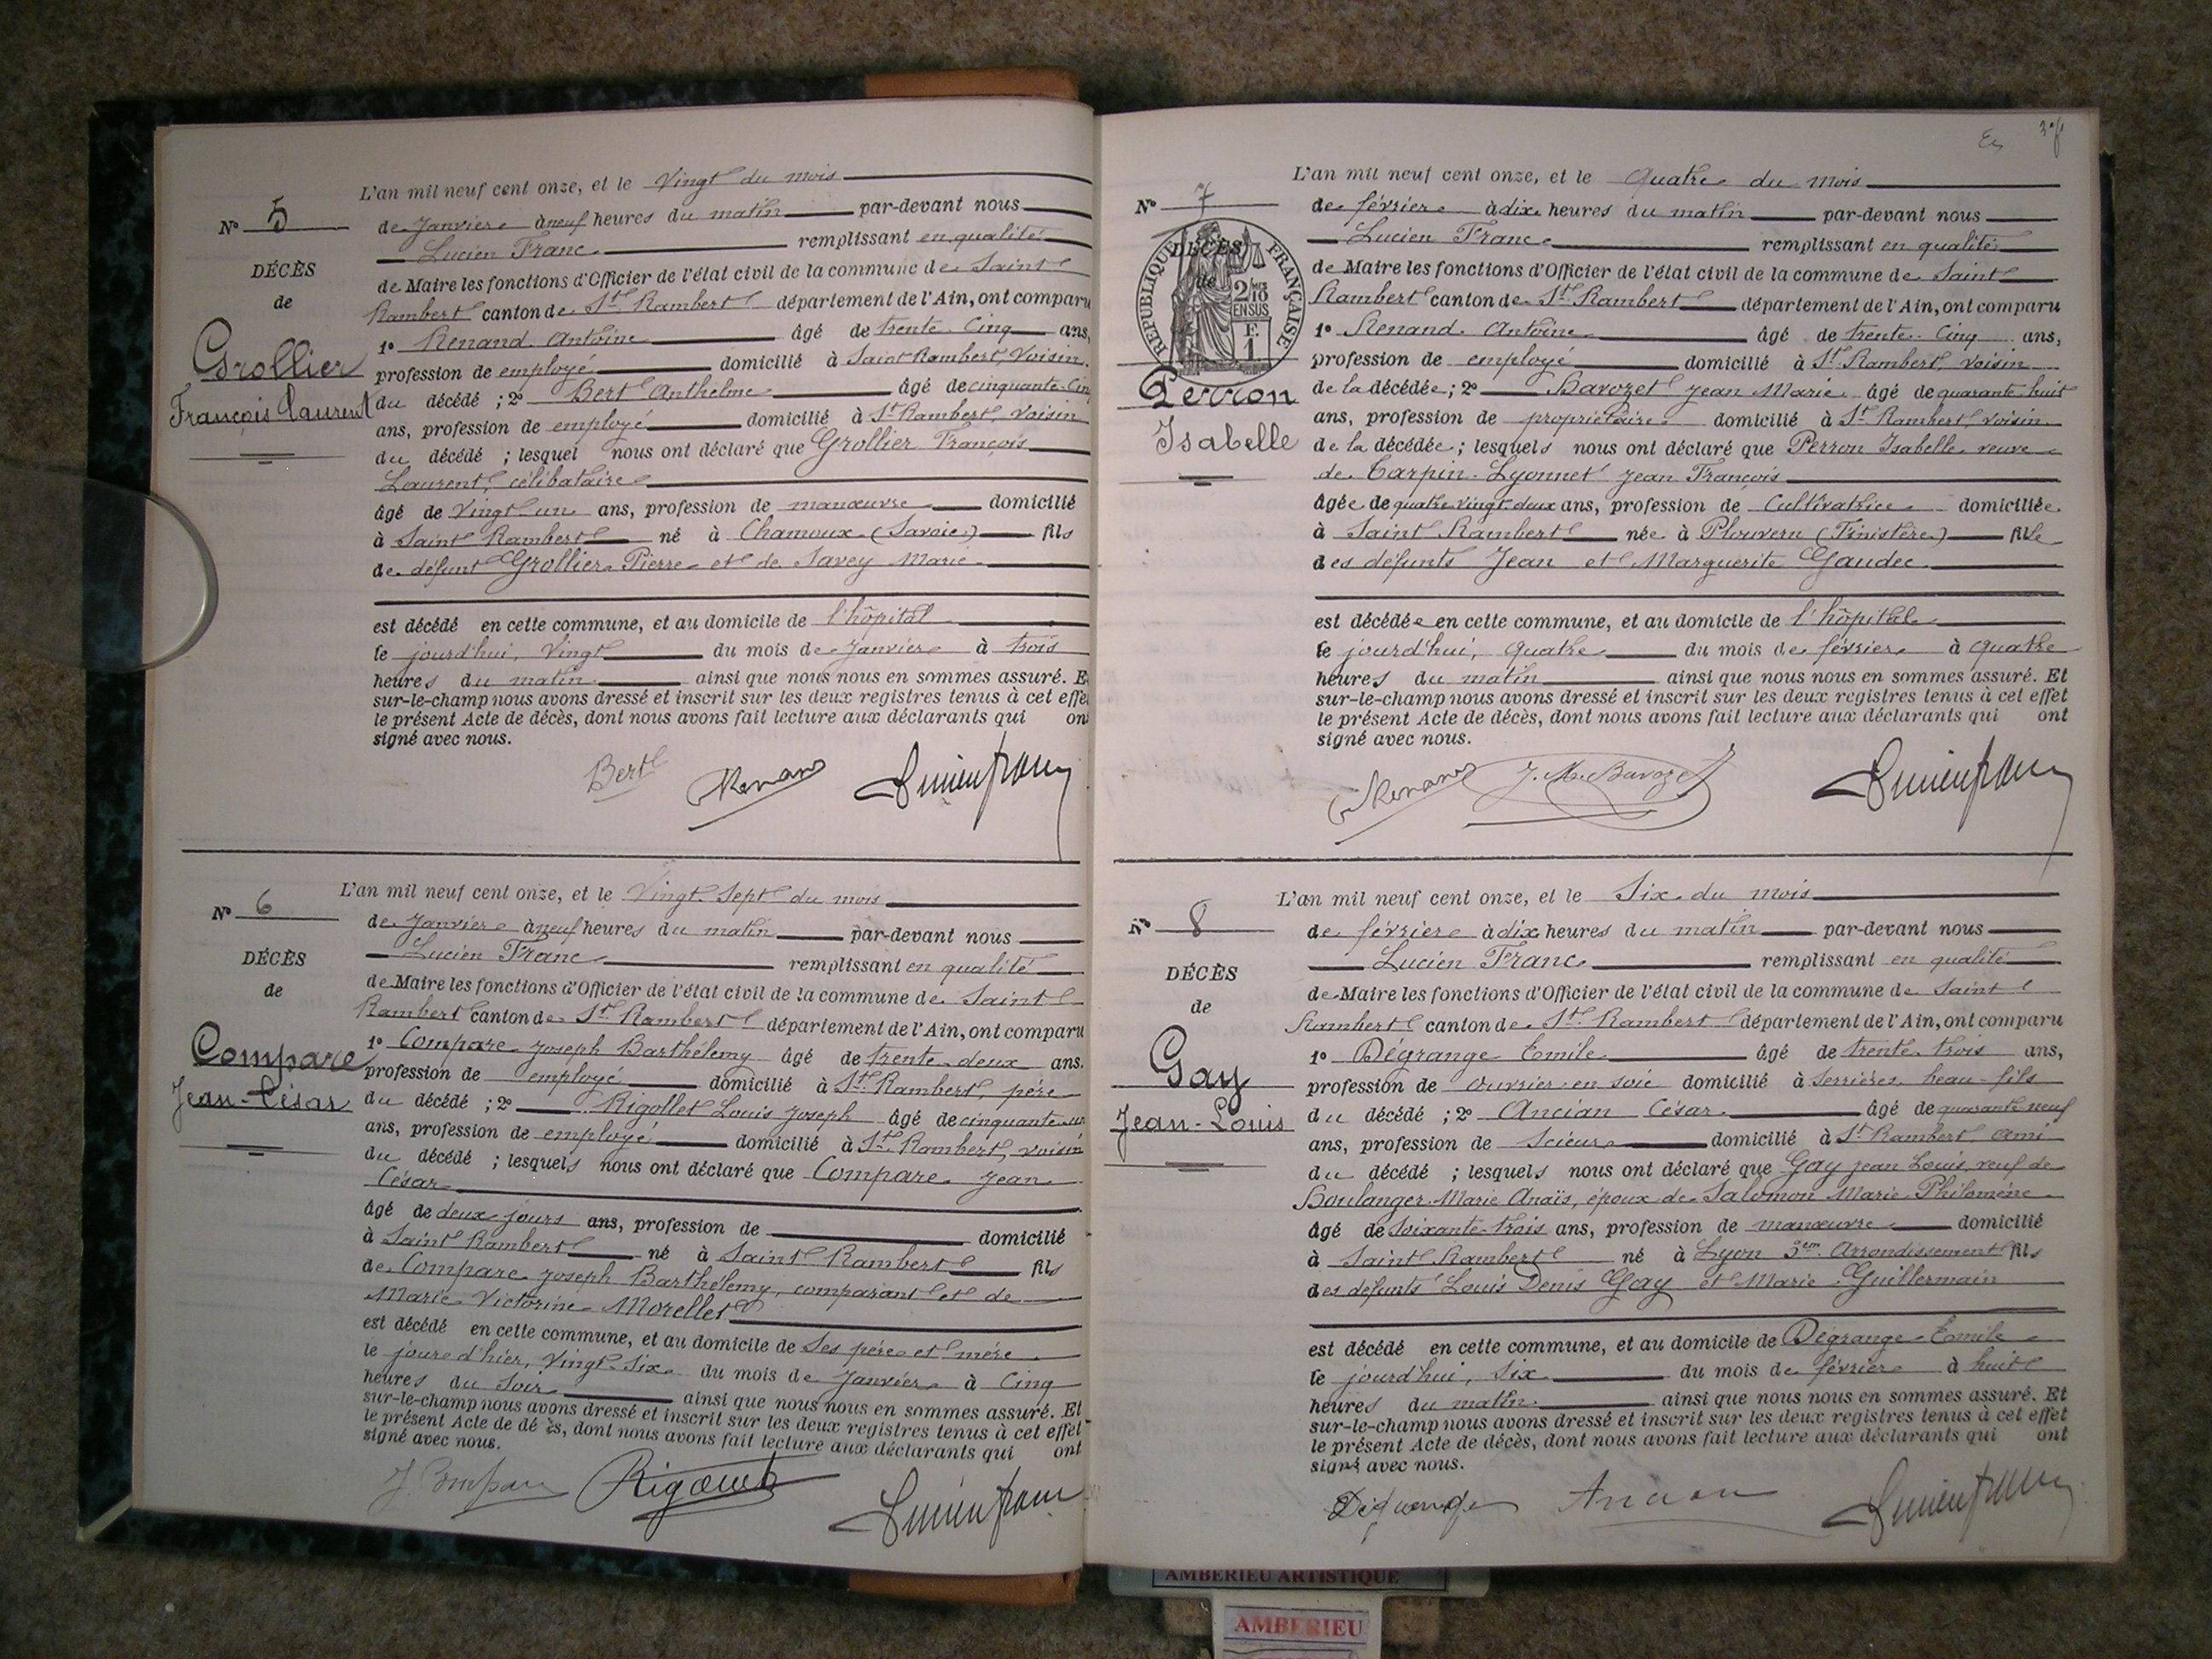 L'an mil neuf cent onze, et le Vingt du mois
N° 5
de Janvier à neuf heures du matin par-devant nous
Lucien Franc remplissant en qualité
DÉCÈS
de Maire les fonctions d'Officier de l'état civil de la commune de Saint
de
Rambert canton de St Rambert département de l'Ain, ont comparu
1° Renand Antoine âgé de trente cinq ans,
Grollier
profession de employé domicilié à Saint Rambert, voisin
François Laurent
du décédé ; 2° Bert Anthelme âgé de cinquante-cin
ans, profession de employé domicilié à St Rambert, voisin
du décédé ; lesquel nous ont déclaré que Grollier François
Laurent, célibataire
âgé de vingt un ans, profession de manœuvre domicilié
à Saint Rambert né à Chamoux (Savoie) fils
de défunt Grollier Pierre et de Savey Marie
est décédé en cette commune, et au domicile de l'hôpital
le jourd'hui, Vingt du mois de Janvier à trois
heures du matin ainsi que nous nous en sommes assuré. E
sur-le-champ nous avons dressé et inscrit sur les deux registres tenus à cet effe
le présent Acte de décès, dont nous avons fait lecture aux déclarants qui ont
signé avec nous.
Bert Renand Lucien Franc
L'an mil neuf cent onze, et le Vingt Sept du mois
N° 6
de Janvier à neuf heures du matin par-devant nous
Lucien Franc remplissant en qualité
DÉCÈS
de Maire les fonctions d'Officier de l'état civil de la commune de Saint
de
Rambert canton de St Rambert département de l'Ain, ont comparu
1° Compare Joseph Barthélemy âgé de trente deux ans,
Compare
profession de employé domicilié à St Rambert, père
Jean-César
du décédé ; 2° Rigollet Louis Joseph âgé de cinquante un
ans, profession de employé domicilié à St Rambert, voisin
du décédé ; lesquels nous ont déclaré que Compare Jean
César
âgé de deux jours ans, profession de domicilié
à Saint Rambert né à Saint Rambert fils
de Compare Joseph Barthélemy, comparant et de
Marie Victorine Morellet
est décédé en cette commune, et au domicile de Ses père et mère
le jour d'hier, Vingt Six du mois de Janvier à Cinq
heures du Soir ainsi que nous nous en sommes assuré. Et
sur-le-champ nous avons dressé et inscrit sur les deux registres tenus à cet effet
le présent Acte de dé ès, dont nous avons fait lecture aux déclarants qui ont
signé avec nous.
J. Compare Lucien Franc
L'an mil neuf cent onze, et le Quatre du mois
N° 7
de février à dix heures du matin par-devant nous
Lucien Franc remplissant en qualité
DÉCÈS
RÉPUBLIQUE FRANÇAISE
2/10 EN SUS
F. 1
de Maire les fonctions d'Officier de l'état civil de la commune de Saint
de
Rambert canton de St Rambert département de l'Ain, ont comparu
1° Renand Antoine âgé de trente cinq ans,
profession de employé domicilié à St Rambert, voisin
Perron
de la décédée ; 2° Bavozet Jean Marie âgé de quarante huit
ans, profession de propriétaire domicilié à St Rambert, voisin
Isabelle
de la décédée ; lesquels nous ont déclaré que Perron Isabelle veuve
de Carpin-Lyonnet Jean François
âgée de quatre vingt deux ans, profession de Cultivatrice domiciliée
à Saint Rambert née à Plouvern (Finistère) fille
des défunts Jean et Marguerite Gaudec
est décédée en cette commune, et au domicile de l'hôpital
le jourd'hui, Quatre du mois de février à quatre
heures du matin ainsi que nous nous en sommes assuré. Et
sur-le-champ nous avons dressé et inscrit sur les deux registres tenus à cet effet
le présent Acte de décès, dont nous avons fait lecture aux déclarants qui ont
signé avec nous.
Renand J. M. Bavozet Lucien Franc
L'an mil neuf cent onze, et le Six du mois
N° 8
de février à dix heures du matin par-devant nous
Lucien Franc remplissant en qualité
DÉCÈS
de Maire les fonctions d'Officier de l'état civil de la commune de Saint
de
Rambert canton de St Rambert département de l'Ain, ont comparu
1° Dégrange Emile âgé de trente trois ans,
Gay
profession de Ouvrier en soie domicilié à Serrières, beau-fils
Jean-Louis
du décédé ; 2° Ancian César âgé de quarante neuf
ans, profession de Scieur domicilié à St Rambert, ami
du décédé ; lesquels nous ont déclaré que Gay Jean Louis, veuf de
Boulanger Marie Anaïs, époux de Salomon Marie Philomène
âgé de Soixante-trois ans, profession de manœuvre domicilié
à Saint Rambert né à Lyon 3em Arrondissement fils
des défunts Louis Denis Gay et Marie Guillermain
est décédé en cette commune, et au domicile de Dégrange Emile
le jourd'hui, Six du mois de février à huit
heures du matin ainsi que nous nous en sommes assuré. Et
sur-le-champ nous avons dressé et inscrit sur les deux registres tenus à cet effet
le présent Acte de décès, dont nous avons fait lecture aux déclarants qui ont
signé avec nous.
Dégrange Ancian Lucien Franc
AMBERIEU ARTISTIQUE
AMBERIEU